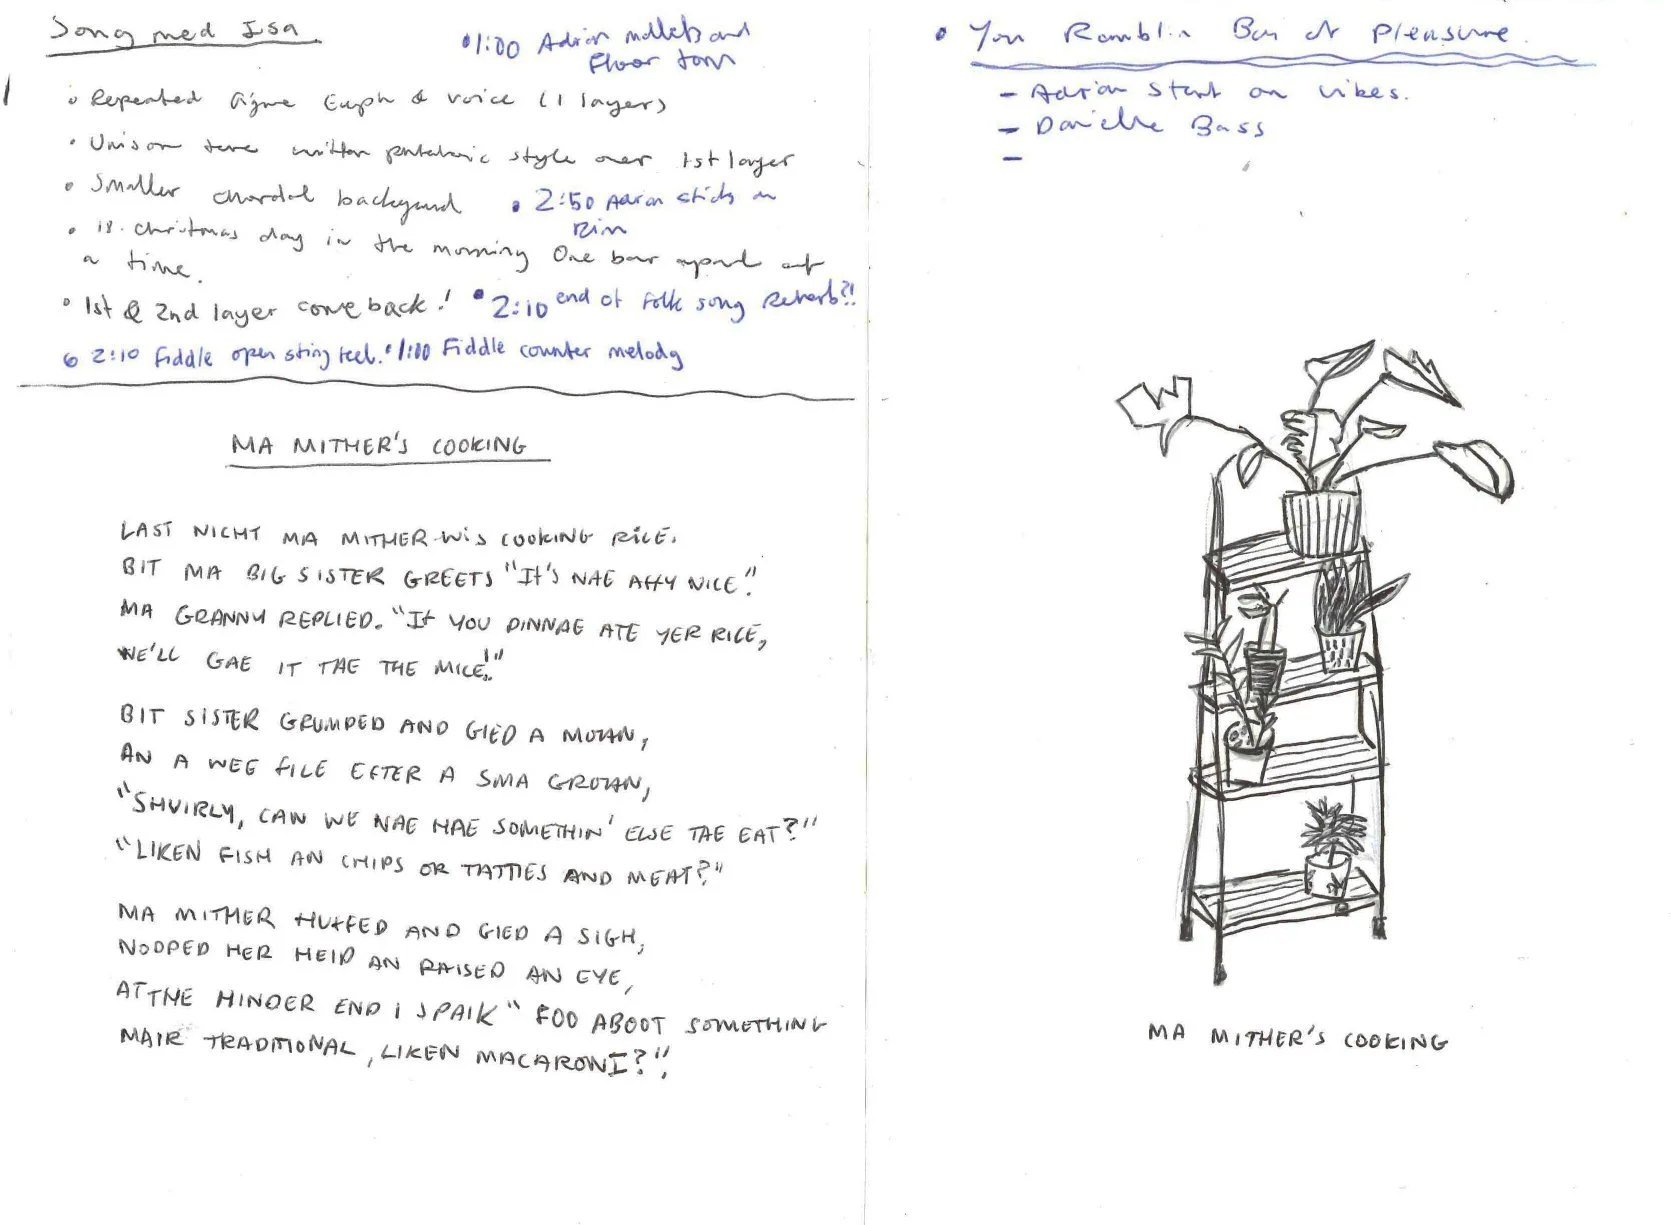 Song med Isa
•1:00 Adrian mallets and
Floor tom
• Repeated Euph & voice (1 layers)
• Unison tune written style over 1st layer
• Smaller chordal background
• 2:50 Adrian sticks on
Rim
• christmas day in the morning One bar apart at
a time.
• 1st & 2nd layer come back!
• 2:10 end of folk song Reverb?!
• 2:10 Fiddle open string feel. • 1:00 Fiddle counter melody
MA MITHER'S COOKING
LAST NICHT MA MITHER WIS COOKING RICE.
BIT MA BIG SISTER GREETS "IT'S NAE AFFY NICE".
MA GRANNY REPLIED. "IF YOU DINNAE ATE YER RICE,
WE'LL GAE IT TAE THE MICE!"
BIT SISTER GRUMPED AND GIED A MOAN,
AN A WEE FILE EFTER A SMA GROAN,
"SHUIRLY, CAN WE NAE HAE SOMETHIN' ELSE TAE EAT?"
"LIKEN FISH AN CHIPS OR TATTIES AND MEAT?"
MA MITHER HUFFED AND GIED A SIGH,
NODPED HER HEID AN RAISED AN EYE,
AT THE HINDER END I SPAIK "FOO ABOOT SOMETHING
MAIR TRADITIONAL, LIKEN MACARONI?".
• You Ramblin Boys of Pleasure.
- Adrian start on vibes.
- Danielle Bass
-
MA MITHER'S COOKING